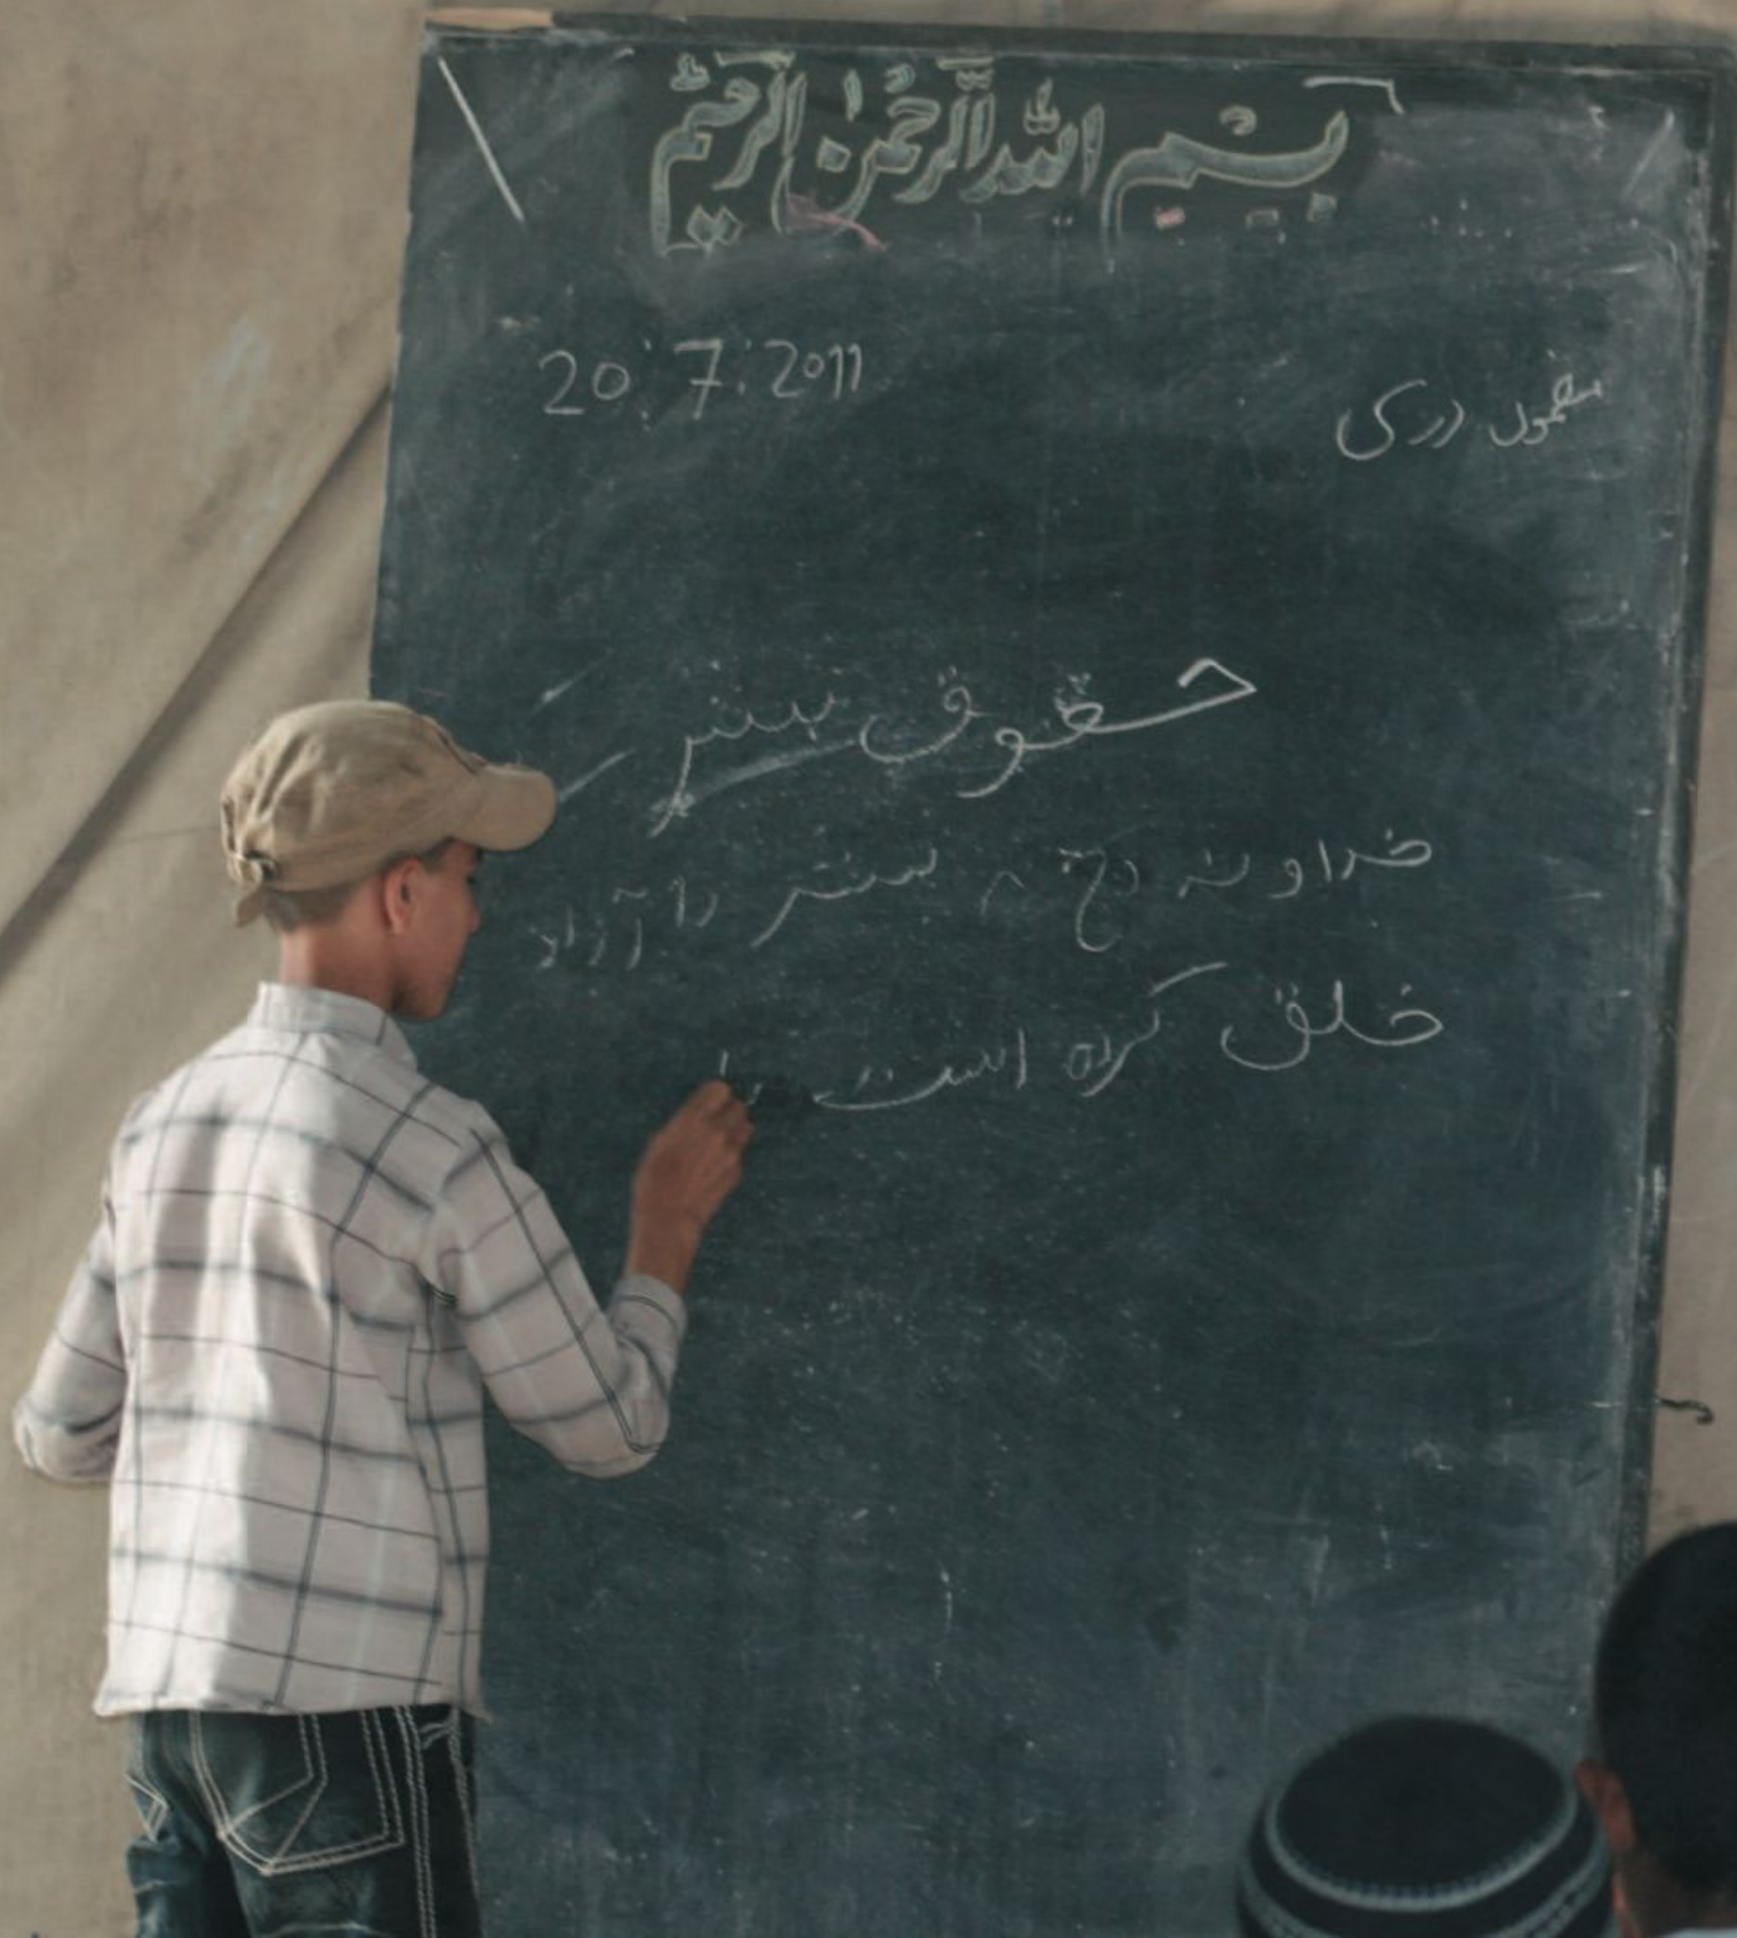 بِسْمِ اللهِ الرَّحْمٰنِ الرَّحِيْمِ
20:7:2011
مضمون دری
حقوق بشر
خداوند ج بشر را آزاد
خلق کرده است